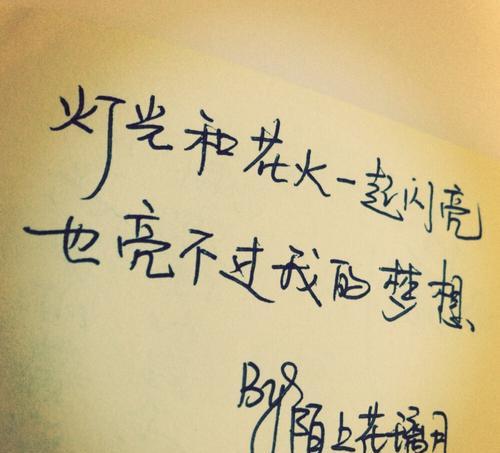 灯光和花火一起闪亮
也亮不过我的梦想
By 陌上花璃月